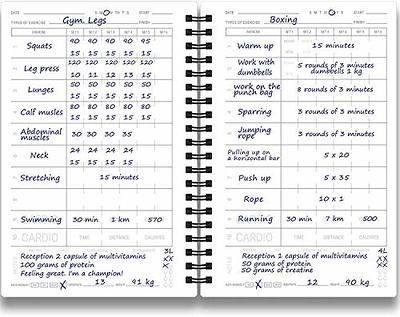 DATE S M T W T F S START
TYPES OF EXERCISE Gym. Legs FINISH
EXERCISE WT 1 WT 2 WT 3 WT 4 WT 5 WT 6
Squats 90 90 90 95
15 15 15 15
Leg press 120 120 120 120 120
10 10 10 10 10
Lunges 50 50 50 50
15 15 15 15
Calf musles 80 80 80 80 80
15 15 15 15 15
Abdominal muscles 30 30 30 35
Neck 24 24 24 24
15 15 15 15
Stretching 15 minutes
Swimming 30 min 1 km 570
CARDIO TIME DISTANCE CALORIES
NOTES
Reception 2 capsule of multivitamins
100 grams of protein
Feeling great. I'm a champion!
3L
XX
X
13 91 kg
DATE S M T W T F S START
TYPES OF EXERCISE Boxing FINISH
EXERCISE WT 1 WT 2 WT 3 WT 4 WT 5 WT 6
Warm up 15 minutes
Work with dumbbells 5 rounds of 3 minutes
dumbbells 1 kg
work on the punch bag 8 rounds of 3 minutes
Sparring 3 rounds of 3 minutes
Jumping rope 3 rounds of 3 minutes
Pulling up on a horizontal bar 5 x 20
Push up 5 x 35
Rope 10 x 1
Running 30 min 7 km 500
CARDIO TIME DISTANCE CALORIES
NOTES
Reception 1 capsule of multivitamins
50 grams of protein
50 grams of creatine
4L
XX
XX
12 90 kg